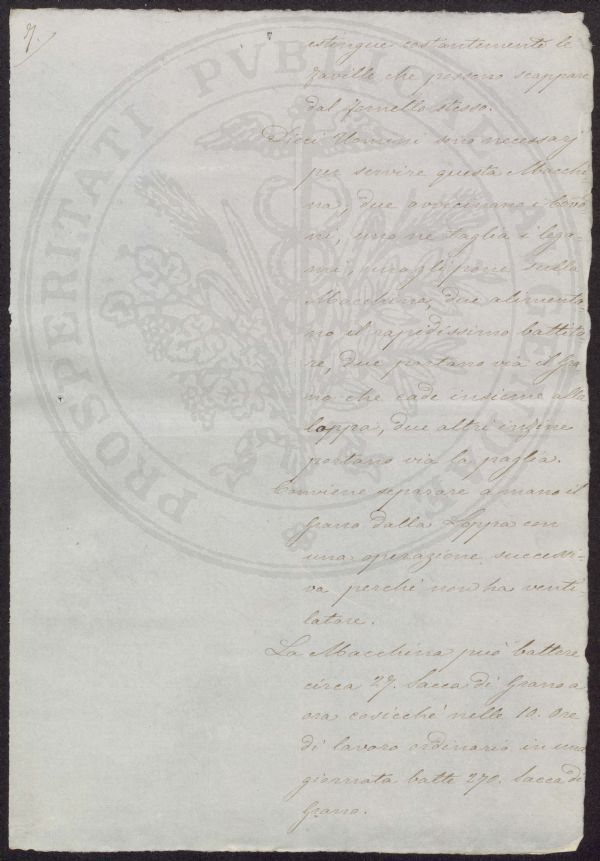 7.
estingue costantemente le
faville che possono scappare
dal fornello stesso.
Dieci Uomini sono necessarj
per servire questa Macchi
na; due avvicinano i Covo
ni, uno ne taglia i lega-
mi, uno gli pone sulla
Macchina, due alimenta-
no il rapidissimo battito-
re, due portano via il Gra
no che cade insieme alla
loppa, due altri infine
portano via la paglia.
Conviene separare a mano il
Grano dalla Loppa con
una operazione successi-
va perchè non ha venti-
latore.
La Macchina può battere
circa 27. Sacca di Grano a
ora cosicchè nelle 10. Ore
di lavoro ordinario in una
giornata batte 270. Sacca di
Grano.
PROSPERITATI PVBLICAE AVGENDAE